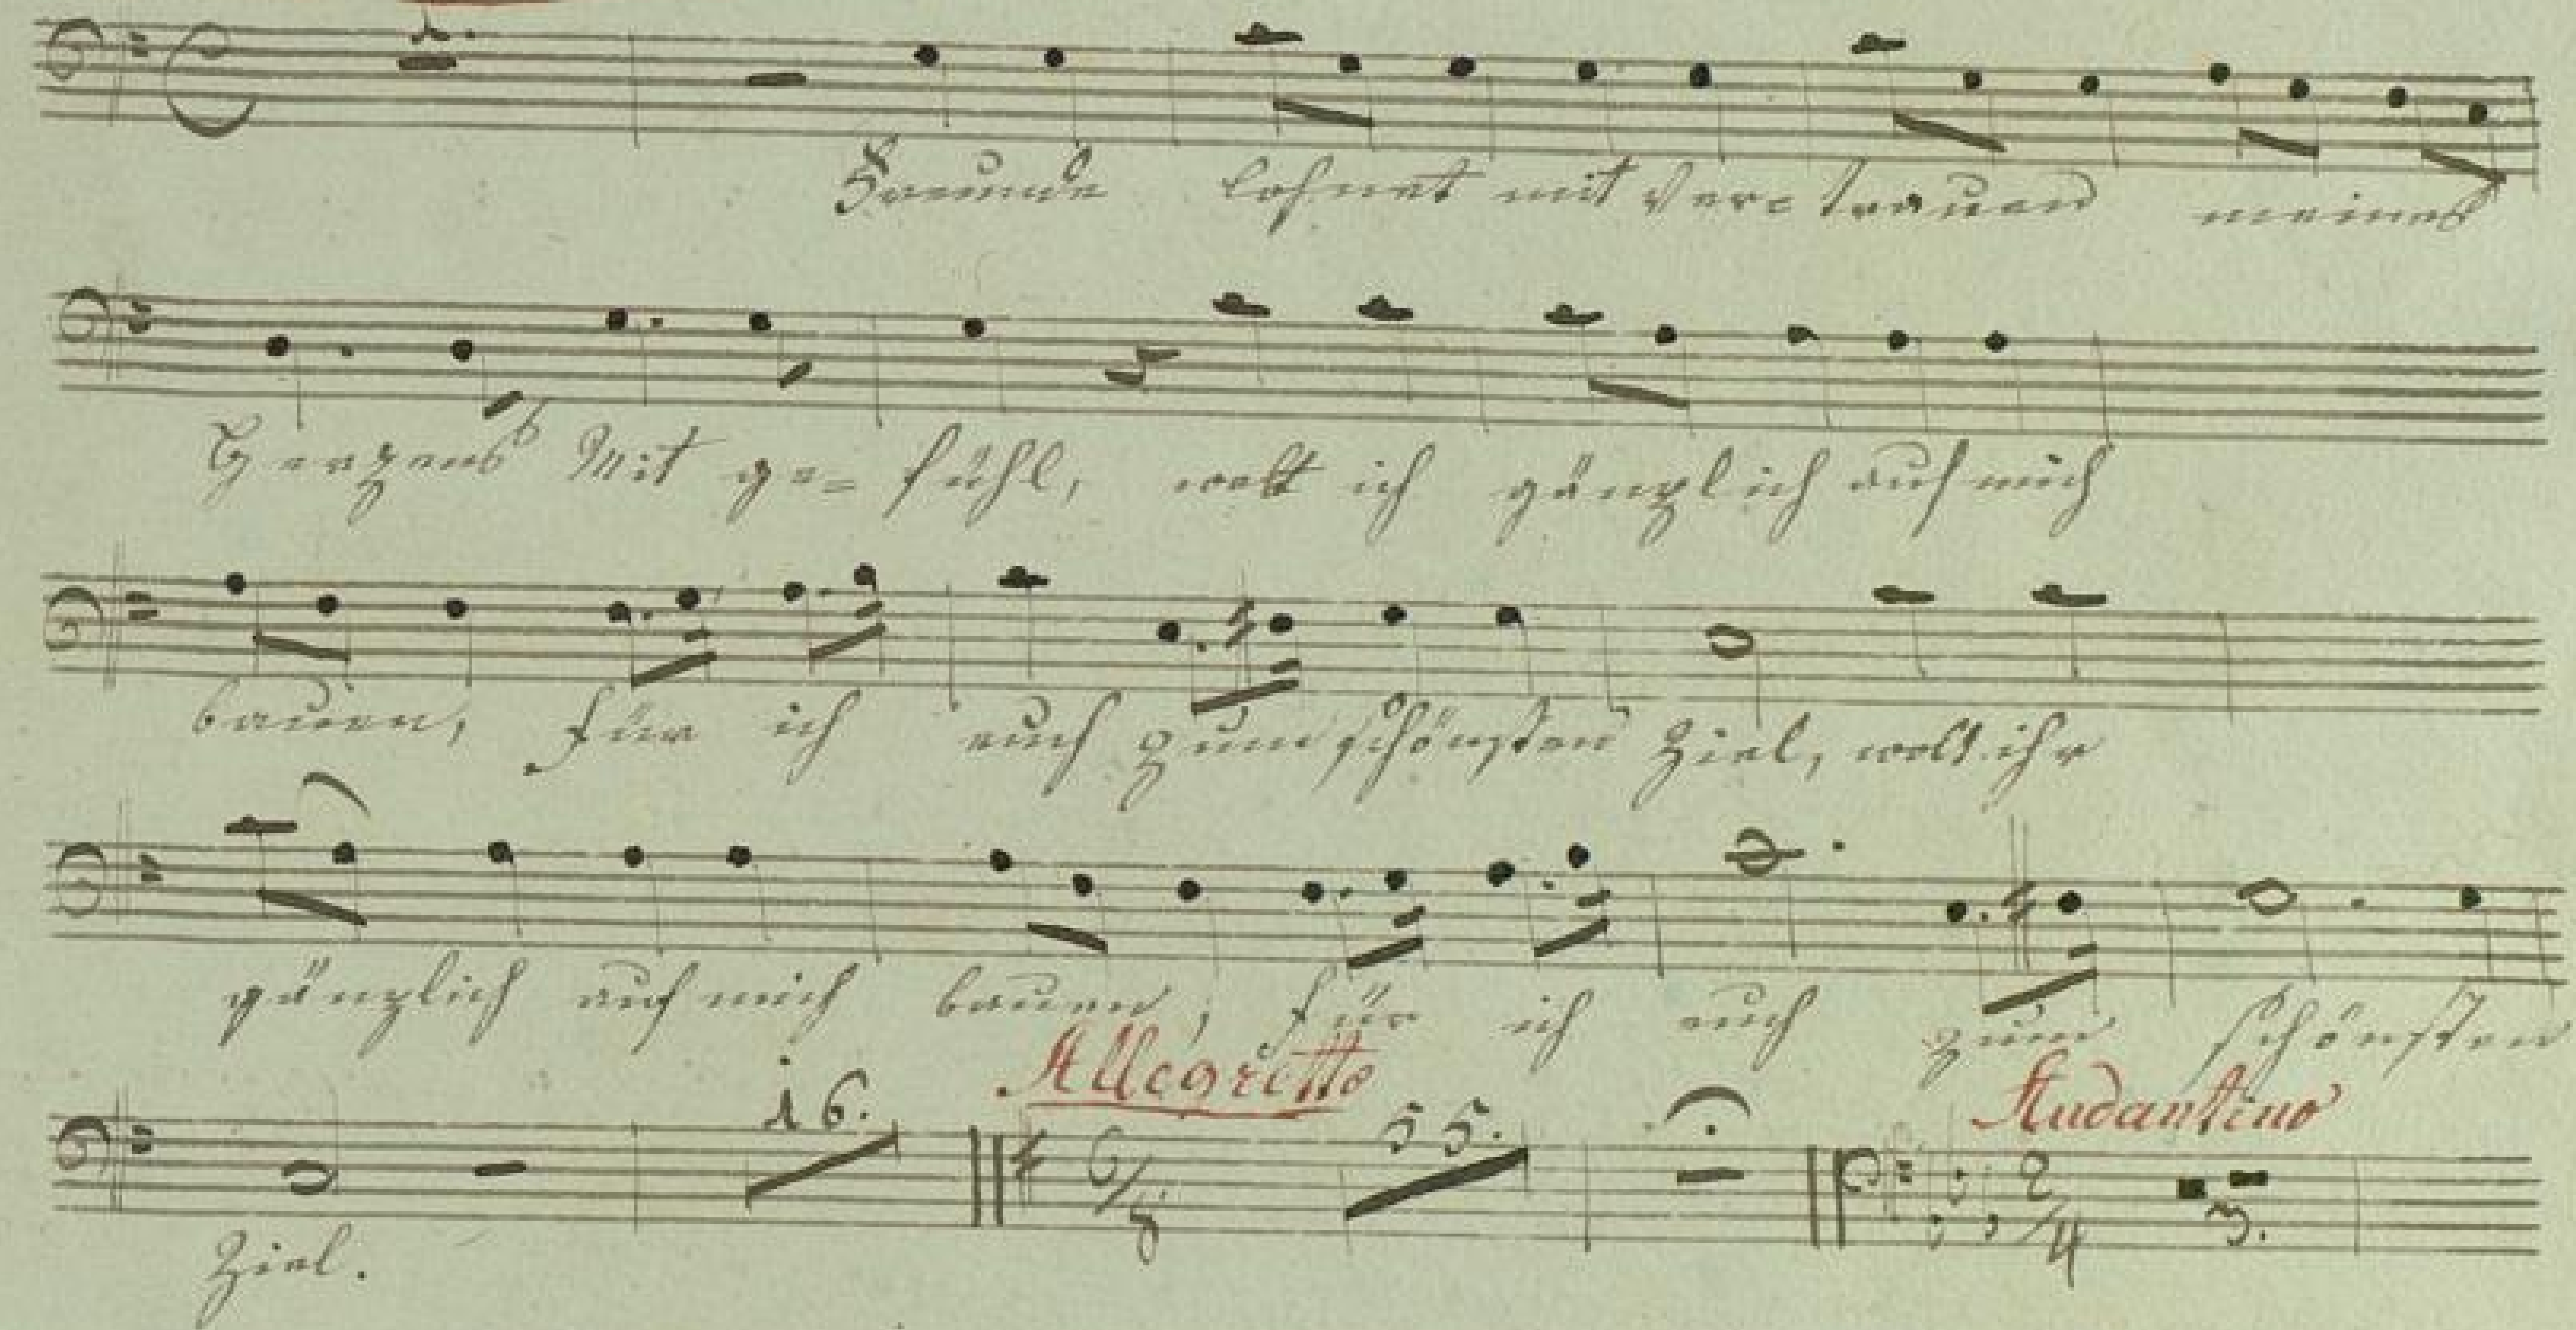 1.
Freunde lohnet mit Ver= trauen meines
Herzens Mit ge= fühl, wolt ich gänzlich auf mich
bauen, für ich euch zum schönsten Ziel, wolt ihr
gänzlich auf mich bauen, für ich euch zum schönsten
16. Allegretto 6/8 55. Andantino 2/4 3.
Ziel.